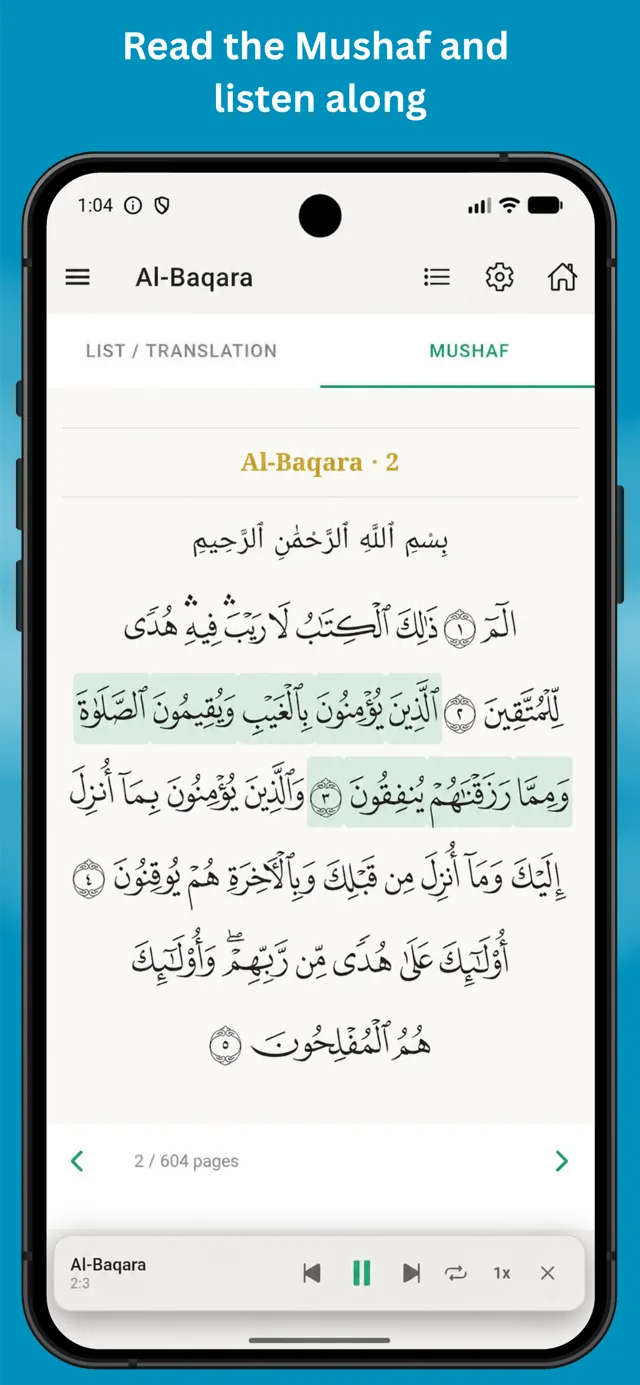 Read the Mushaf and
listen along
1:04
Al-Baqara
LIST / TRANSLATION
MUSHAF
Al-Baqara · 2
بِسْمِ ٱللَّهِ ٱلرَّحْمَٰنِ ٱلرَّحِيمِ
الٓمٓ ١ ذَٰلِكَ ٱلْكِتَٰبُ لَا رَيْبَ ۛ فِيهِ ۛ هُدًى
لِّلْمُتَّقِينَ ٢ ٱلَّذِينَ يُؤْمِنُونَ بِٱلْغَيْبِ وَيُقِيمُونَ ٱلصَّلَوٰةَ
وَمِمَّا رَزَقْنَٰهُمْ يُنفِقُونَ ٣ وَٱلَّذِينَ يُؤْمِنُونَ بِمَآ أُنزِلَ
إِلَيْكَ وَمَآ أُنزِلَ مِن قَبْلِكَ وَبِٱلْءَاخِرَةِ هُمْ يُوقِنُونَ ٤
أُو۟لَٰٓئِكَ عَلَىٰ هُدًى مِّن رَّبِّهِمْ ۖ وَأُو۟لَٰٓئِكَ
هُمُ ٱلْمُفْلِحُونَ ٥
2 / 604 pages
Al-Baqara
2:3
1x